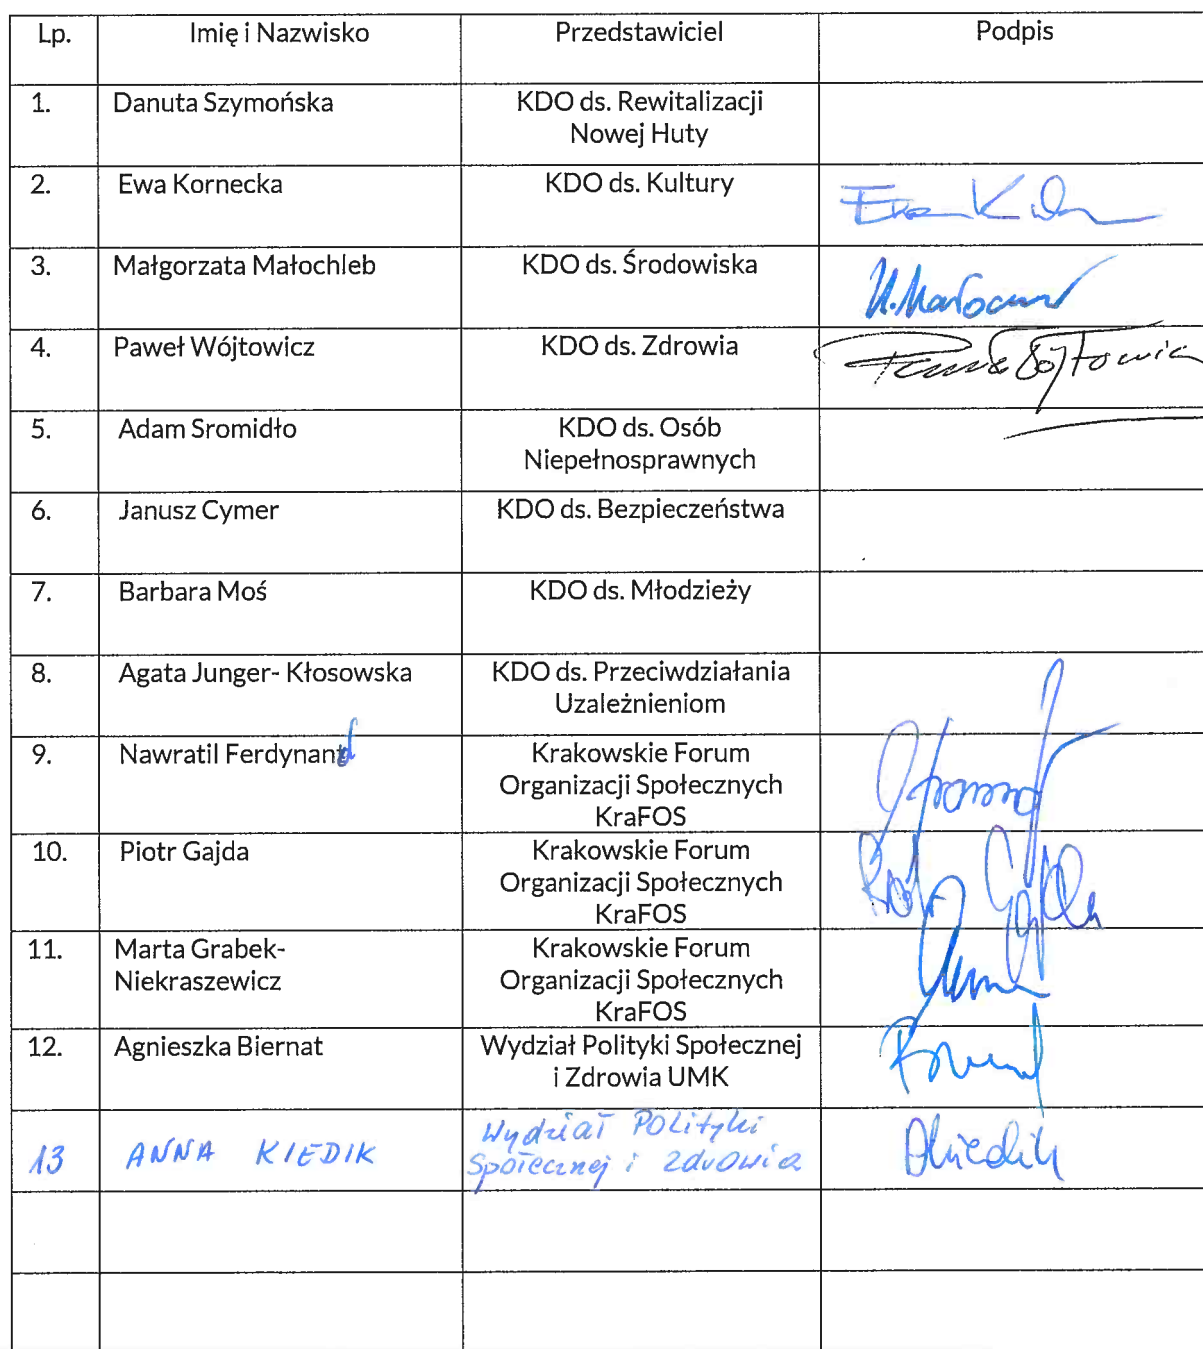 Lp. Imię i Nazwisko Przedstawiciel Podpis
1. Danuta Szymońska KDO ds. Rewitalizacji
Nowej Huty
2. Ewa Kornecka KDO ds. Kultury
3. Małgorzata Małochleb KDO ds. Środowiska
4. Paweł Wójtowicz KDO ds. Zdrowia
5. Adam Sromidło KDO ds. Osób
Niepełnosprawnych
6. Janusz Cymer KDO ds. Bezpieczeństwa
7. Barbara Moś KDO ds. Młodzieży
8. Agata Junger- Kłosowska KDO ds. Przeciwdziałania
Uzależnieniom
9. Nawratil Ferdynand Krakowskie Forum
Organizacji Społecznych
KraFOS
10. Piotr Gajda Krakowskie Forum
Organizacji Społecznych
KraFOS
Piotr Gajda
11. Marta Grabek- Krakowskie Forum
Niekraszewicz Organizacji Społecznych
KraFOS
12. Agnieszka Biernat Wydział Polityki Społecznej
i Zdrowia UMK
13 ANNA KIEDIK Wydział Polityki
Społecznej i Zdrowia
AKiedik